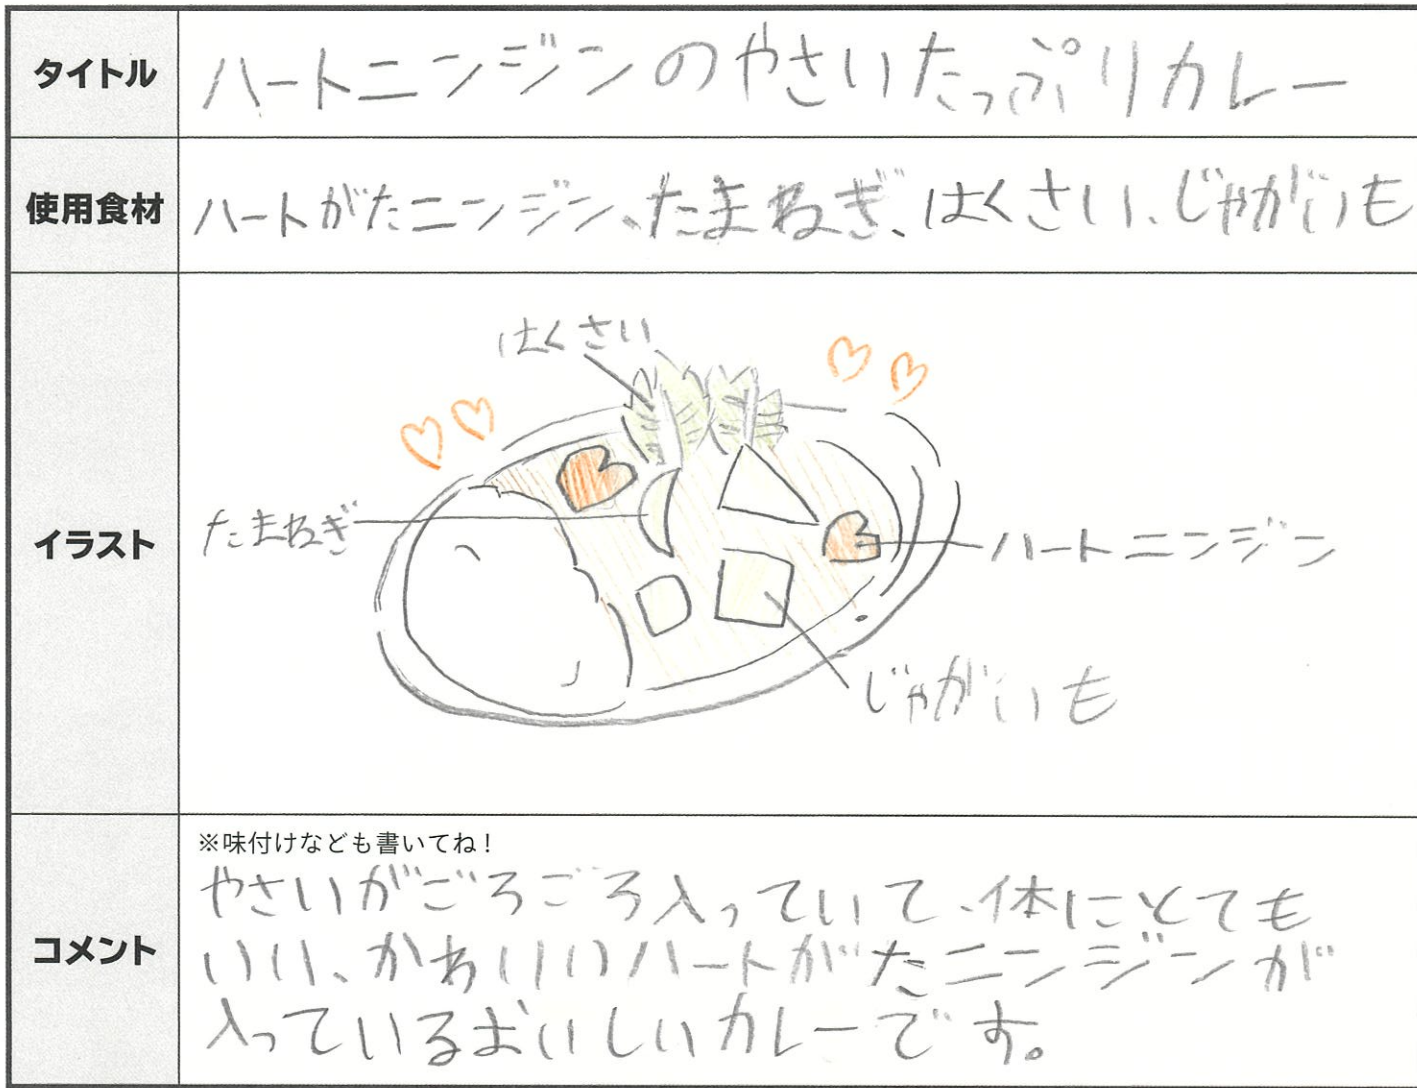 タイトル
ハートニンジンのやさいたっぷりカレー
使用食材
ハートがたニンジン、たまねぎ、はくさい、じゃがいも
イラスト
はくさい
たまねぎ
ハートニンジン
じゃがいも
コメント
※味付けなども書いてね!
やさいがごろごろ入っていて、体にとても
いい、かわいいハートがたニンジンが
入っているおいしいカレーです。